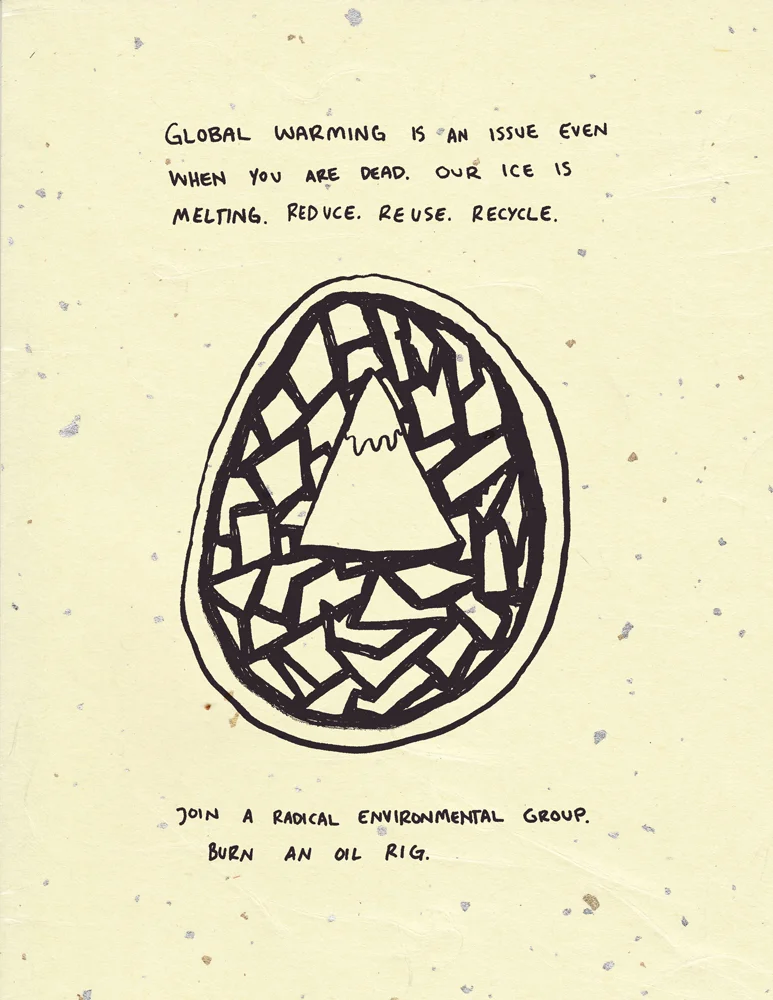 GLOBAL WARMING IS AN ISSUE EVEN
WHEN YOU ARE DEAD. OUR ICE IS
MELTING. REDUCE. REUSE. RECYCLE.
JOIN A RADICAL ENVIRONMENTAL GROUP.
BURN AN OIL RIG.